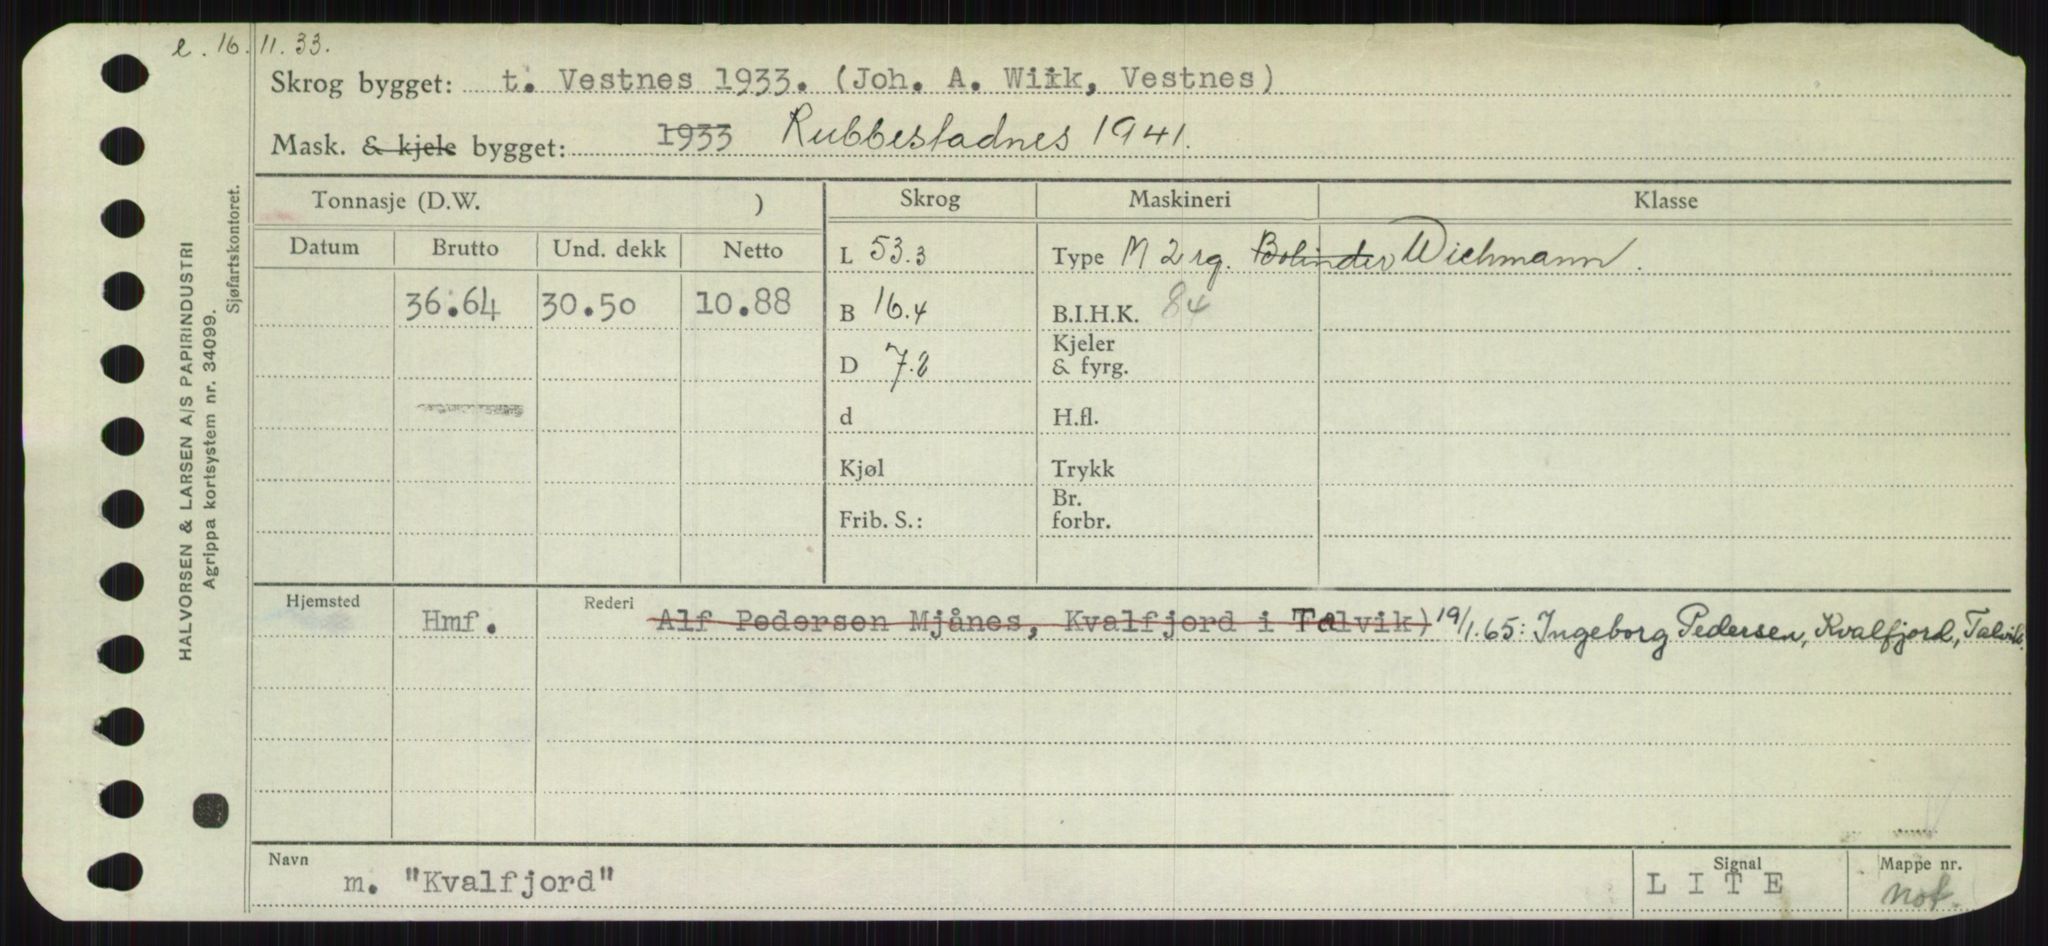 e. 16.11.33.
Skrog bygget: t. Vestnes 1933. (Joh. A. Wiik, Vestnes)
Mask. & kjele bygget: 1933 Rubbestadnes 1941.
HALVORSEN & LARSEN A/S PAPIRINDUSTRI
Agrippa kortsystem nr. 34099.
Sjøfartskontoret.
Tonnasje (D.W. ) Skrog Maskineri Klasse
Datum Brutto Und. dekk Netto L 53.3 Type M 2 rg. Bolinder Wichmann.
36.64 30.50 10.88 B 16.4 B.I.H.K. 84
D 7.2 Kjeler & fyrg.
d H.fl.
Kjøl Trykk
Frib. S.: Br. forbr.
Hjemsted Hmf. Rederi Alf Pedersen Mjånes, Kvalfjord i Talvik) 19/1.65: Ingeborg Pedersen, Kvalfjord, Talvik.
Navn m. "Kvalfjord" Signal L I T E Mappe nr. not.